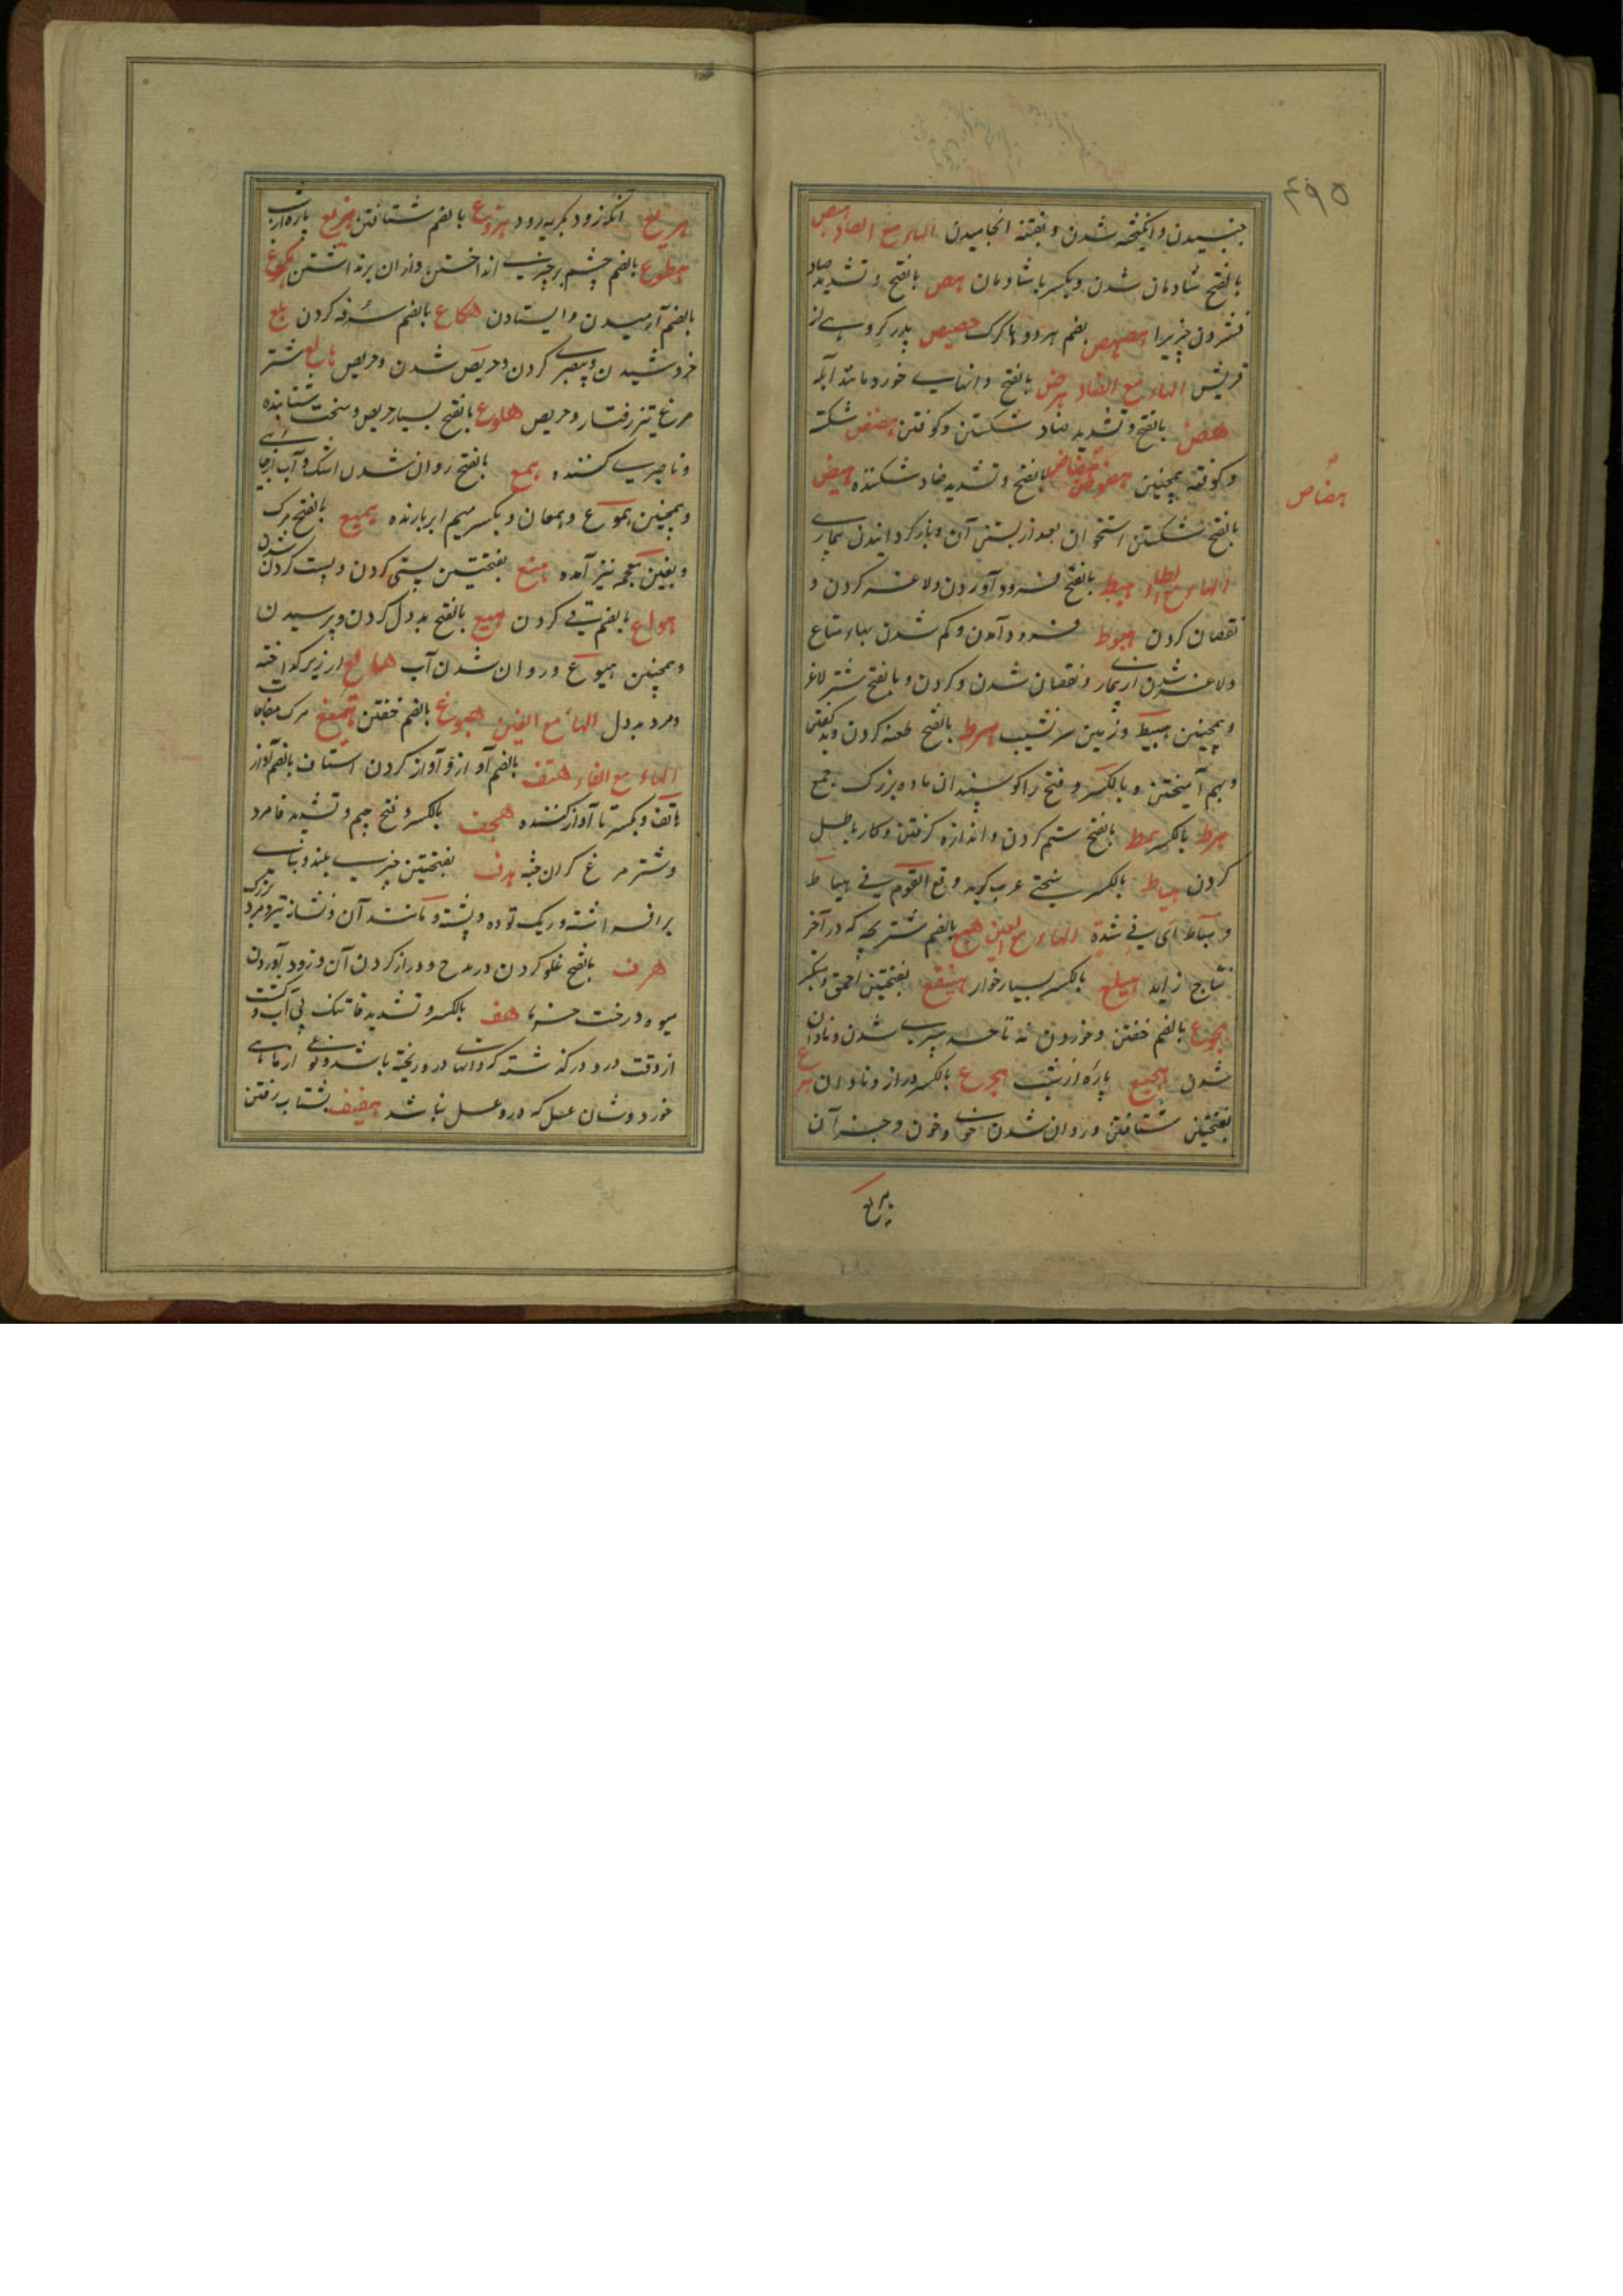 ۴۹۵
جنبیدن و انکیخته شدن و بفتنه انجامیدن الهاء مع الصاد هبص
بالفتح شادمان شدن و بکسر با شادمان هص بالفتح و تشدید صاد
فشردن چیزیرا هصهص بضم هر دو ها کرک هصیص پدر کروهی از
قریش الهاء مع الضاد هرض بالفتح دانهای خورد مانند آبله
هض بالفتح و تشدید ضاد شکستن و کوفتن هضض شکسته
و کوفته همچنین هضوض هضاض بالفتح و تشدید ضاد شکننده هیض
هضاض
بالفتح شکستن استخوان بعد از بستن آن و باز کردانیدن بیماری
الهاء مع الطاء هبط بالفتح فرود آوردن و لاغر کردن و
نقصان کردن هبوط فرود آمدن و کم شدن بهاء متاع
و لاغر شدن از بیماری و نقصان شدن و کردن و بالفتح شتر لاغر
و همچنین هبیط و زمین سرنشیب هرط بالفتح طعنه کردن و بد کفتن
و بهم آمیختن و بالکسر و فتح را کوسپندان ماده بزرک جمع
هرط بالکسر همط بالفتح ستم کردن و اندازه کرفتن و کار باطل
کردن هیاط بالکسر سختی عرب کوید وقع القوم فی هیاط
و میاط ای فی شدة الهاء مع العین هبع بالضم شتر بچه که در آخر
نتاج زاید هبلع بالکسر بسیار خوار هبنقع بفتحتین احمق و متکبر
هجوع بالضم خفتن و خوردن نه تا حد سیری شدن و نادان
شدن هجیع پاره از شب هجرع بالکسر دراز و نادان هرع
بفتحتین شتافتن و روان شدن خوی و خون و جز آن
هریع
هریع آنکه زود بکریه رود هزوع بالضم شتافتن هزیع پاره از شب
هطوع بالضم چشم بر چیزی انداختن و از ان برنداشتن هکوع
بالضم آرمیدن و ایستادن هکاع بالضم سرفه کردن هلع
خروشیدن و بیصبری کردن و حریص شدن و حریص هالع شتر
مرغ تیز رفتار و حریص هلوع بالفتح بسیار حریص و سخت شتابنده
و ناصبری کننده همع بالفتح روان شدن اشک و آب از جای
و همچنین هموع و همعان و بکسر میم ابر بارنده همیع بالفتح مرک
و بغین معجمه نیز آمده هنع بفتحتین پستی کردن و پست کردن شدن
هواع بالضم قی کردن هیع بالفتح بددل کردن و ترسیدن
و همچنین هیوع و روان شدن آب هائع ارزیر کداخته
و مرد بددل الهاء مع الغین هبوغ بالضم خفتن همیغ مرک مفاجات
الهاء مع الفاء هتف بالضم آواز و آواز کردن هتاف بالضم آواز
هاتف و بکسر تا آواز کننده هجف بالکسر و فتح جیم و تشدید فا مرد
و شتر مرغ کران جثه هدف بفتحتین چیزی بلند و بنای
برافراشته و ریک توده و پشته و مانند آن و نشانه تیر و مرد بزرک
هرف بالفتح غلو کردن در مدح و دراز کردن آن و زود آوردن
میوه درخت خرما هف بالکسر و تشدید فا تنک بی آب و کشت
از وقت درو درکذشته که دانهایی در و ریخته باشد و نوعی از ماهی
خورد و شان عسل که درو عسل نباشد هفیف بشتاب رفتن